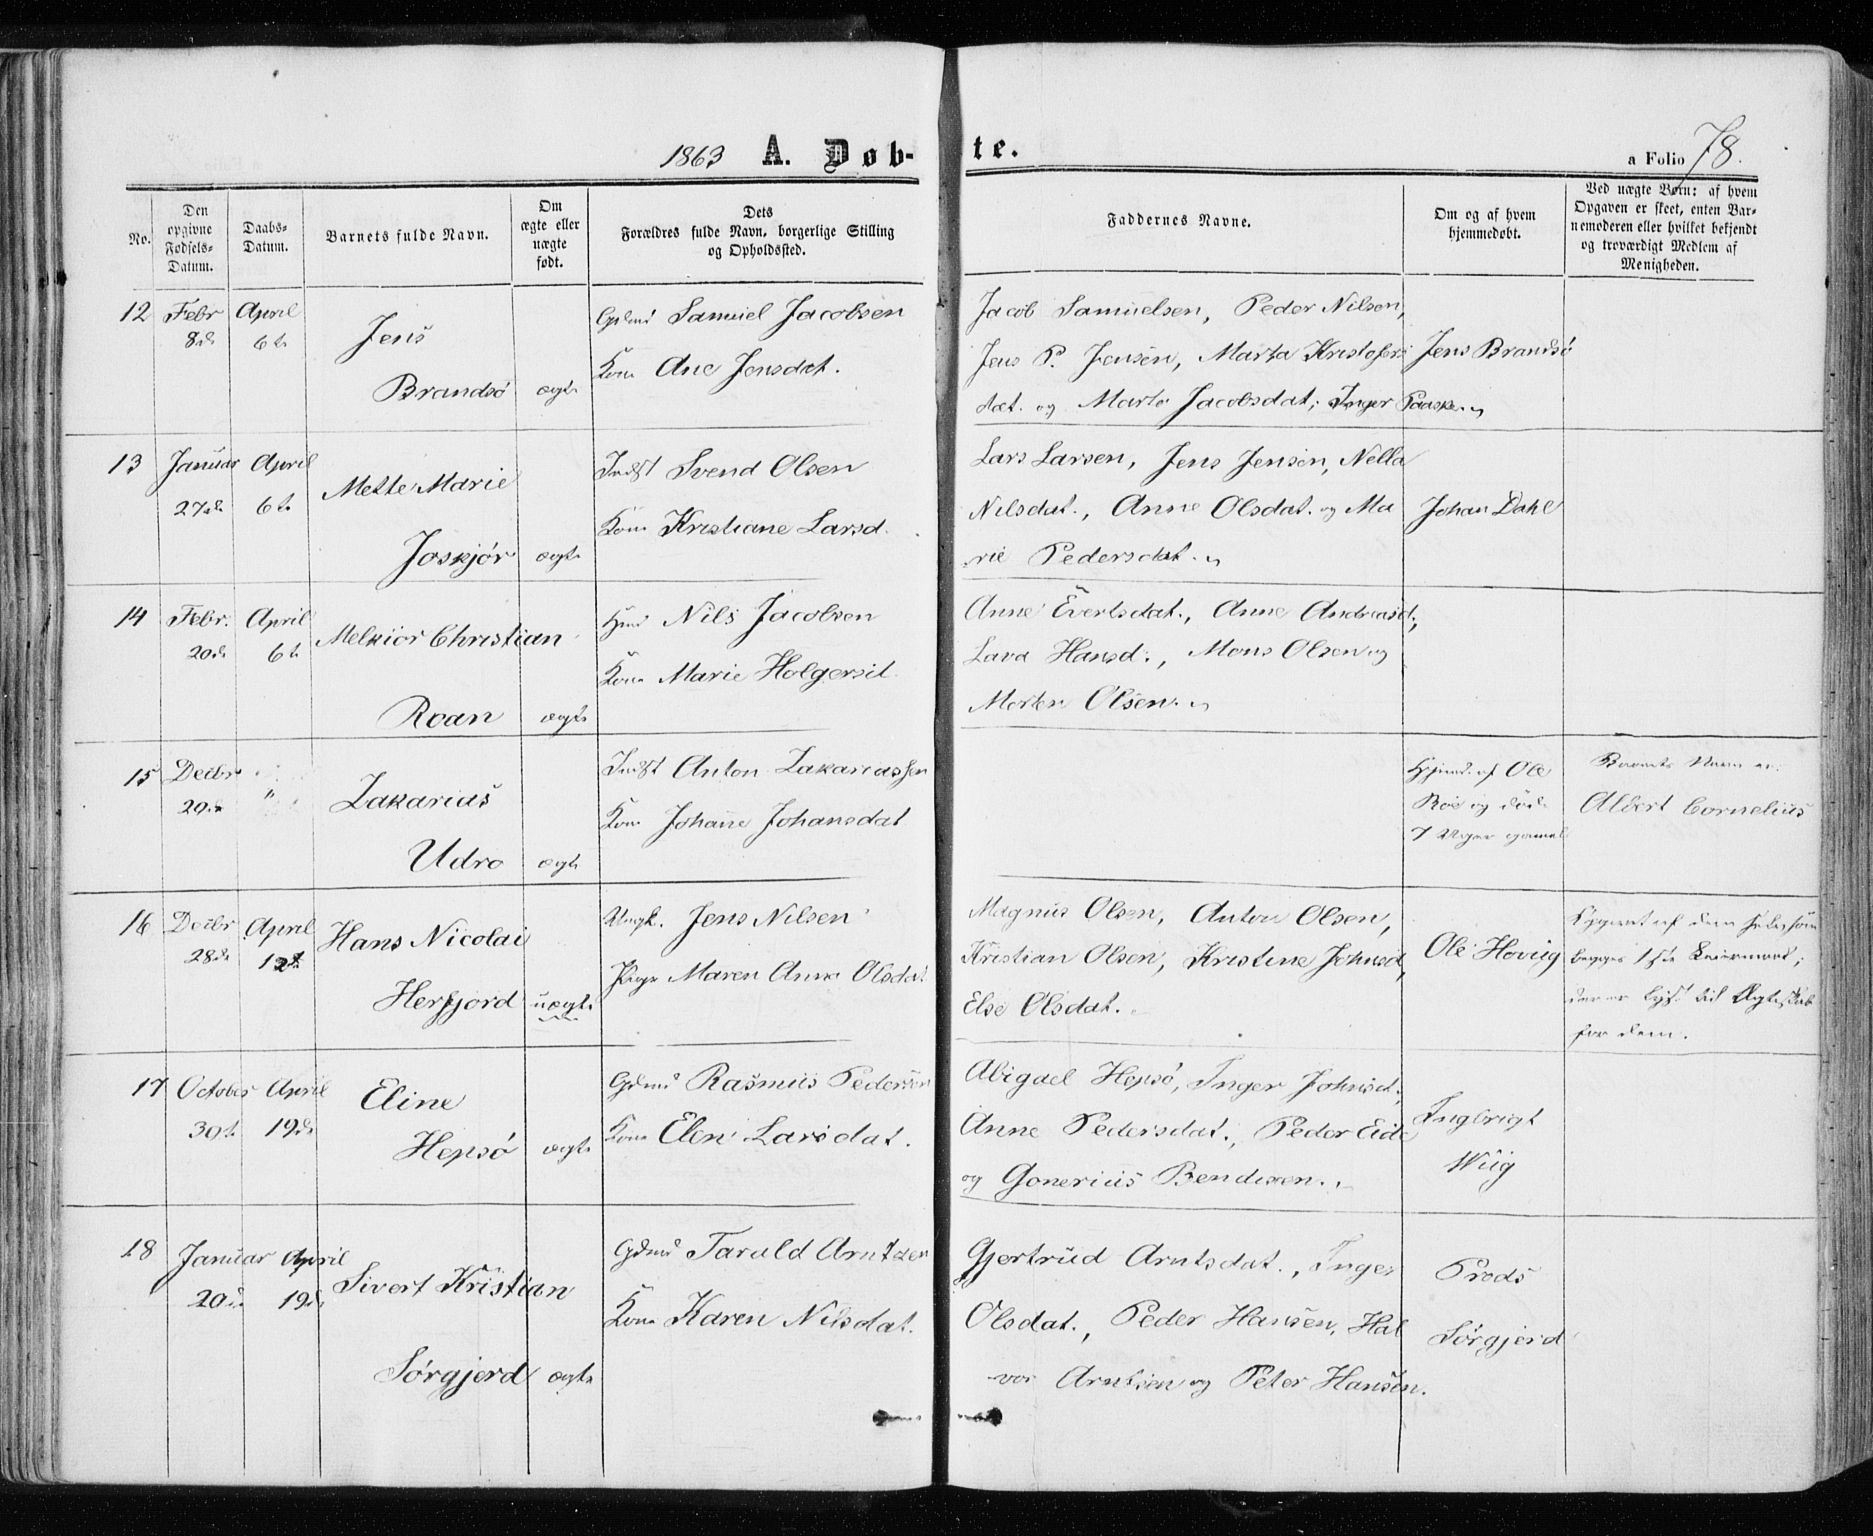 1863 A. Døb-
te.
a Folio 78.
No.
Den opgivne Fødsels-Datum.
Daabs-Datum.
Barnets fulde Navn.
Om ægte eller uægte født.
Dets Forældres fulde Navn, borgerlige Stilling og Opholdssted.
Faddernes Navne.
Om og af hvem hjemmedøbt.
Ved uægte Børn: af hvem Opgaven er skeet, enten Barnemoderen eller hvilket bekjendt og troværdigt Medlem af Menigheden.
12 Febr 8de April 6te
Jens
Brandsø ægte
Gdmd Samuel Jacobsen
Kone Ane Jensdat.
Jacob Samuelsen, Peder Nilsen,
Jens P. Jensen, Marta Kristofers
dat. og Marta Jacobsdat; Inger Paaske.
Jens Brandsø
13 Januar 27de April 6te
Mette Marie
Joskjør ægte
Indst Svend Olsen
Kone Kristiane Larsd.
Lars Larsen, Jens Jensen, Nella
Nilsdat., Anne Olsdat. og Ma
rie Pedersdat.
Johan Dahl
14 Febr. 20de April 6te
Melkior Christian
Roan ægte
Nils Jacobsen
Kone Marie Holgersd.
Anne Evertsdat., Anne Andreasd.,
Lava Hansd., Mons Olsen og
Morten Olsen.
15 Decbr 20de "
Zakarias
Udro ægte
Indst Anton Zakariassen
Kone Johane Johansdat
Hjmd. af Ole
Roe og døde
7 Uger gamel
Barnets Navn er:
Albert Cornelius
16 Decbr 28de April 12te
Hans Nicolai
Herfjord uægte
Ungk. Jens Nilsen
Pige Maren Anna Olsdat
Magnus Olsen, Anton Olsen,
Kristian Olsen, Kristine Johnsd,
Else Olsdat.
Ole Hovug
Opgivet af dem
begges 1ste Leiermaal;
der er lyst til Ægteskab
for dem.
17 October 30te April 19de
Eline
Hepsø ægte
Gdmd Rasmus Pedersen
Kone Elen Larsdat.
Abigael Hepsø, Inger Johnsd.,
Anne Pedersdat., Peder Eide
og Gonerius Bendixen.
Ingbrigt
Wiig
18 Januar 20de April 19de
Sivert Kristian
Sørgjerd ægte
Gdmd Tarald Arntzen
Kone Karen Nilsdat.
Gjertrud Arntsdat., Inger
Olsdat., Peder Hansen, Hal
vor Arntsen og Peter Hansen.
Preds
Sørgjerd